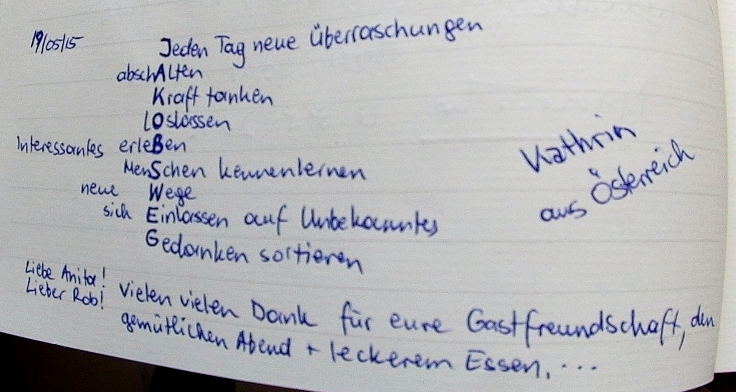 19/05/15
Jeden Tag neue Überraschungen
abschAlten
Kraft tanken
LOslassen
Interessantes erleBen
MenSchen kennenlernen
neue Wege
sich Einlassen auf Unbekanntes
Gedanken sortieren
Kathrin
aus Österreich
Liebe Anita!
Lieber Rob!
Vielen vielen Dank für eure Gastfreundschaft, den
gemütlichen Abend + leckerem Essen, ...